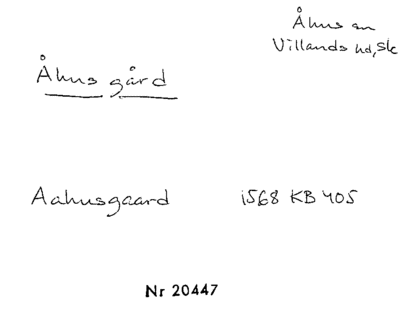 Åhus sn
Villands hd, Sk
Åhus gård
Aahusgaard 1568 KB 405
Nr 20447